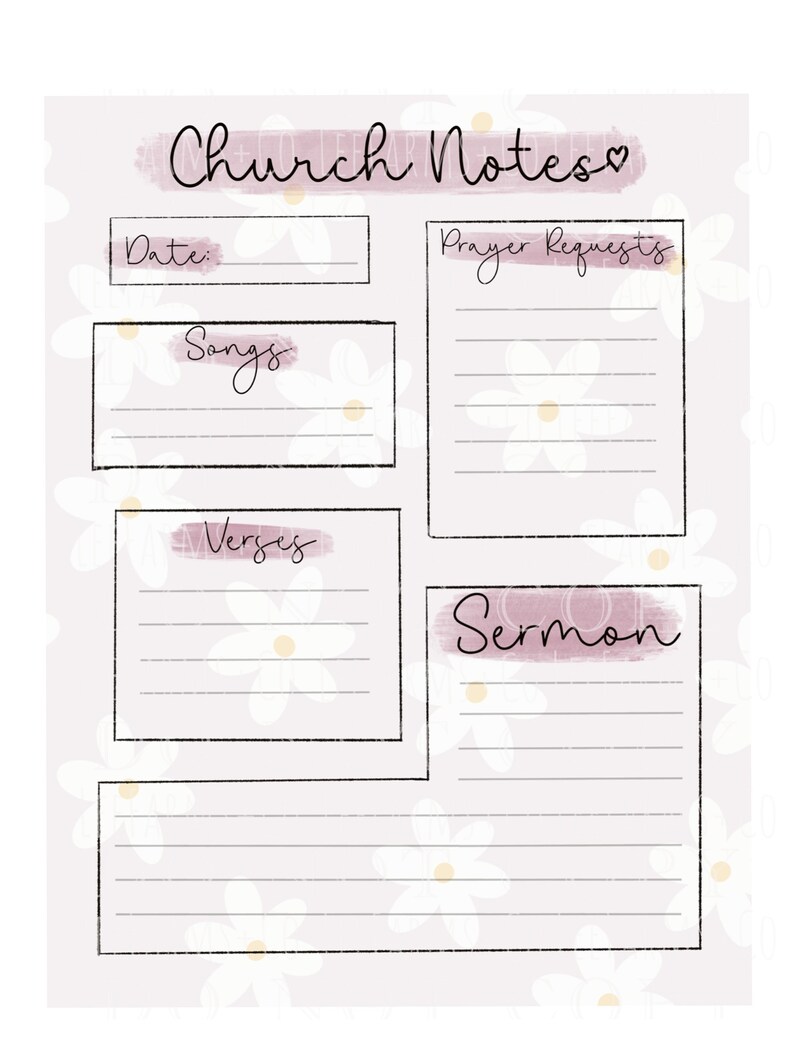 Church Notes
Date:
Prayer Requests
Songs
Verses
Sermon